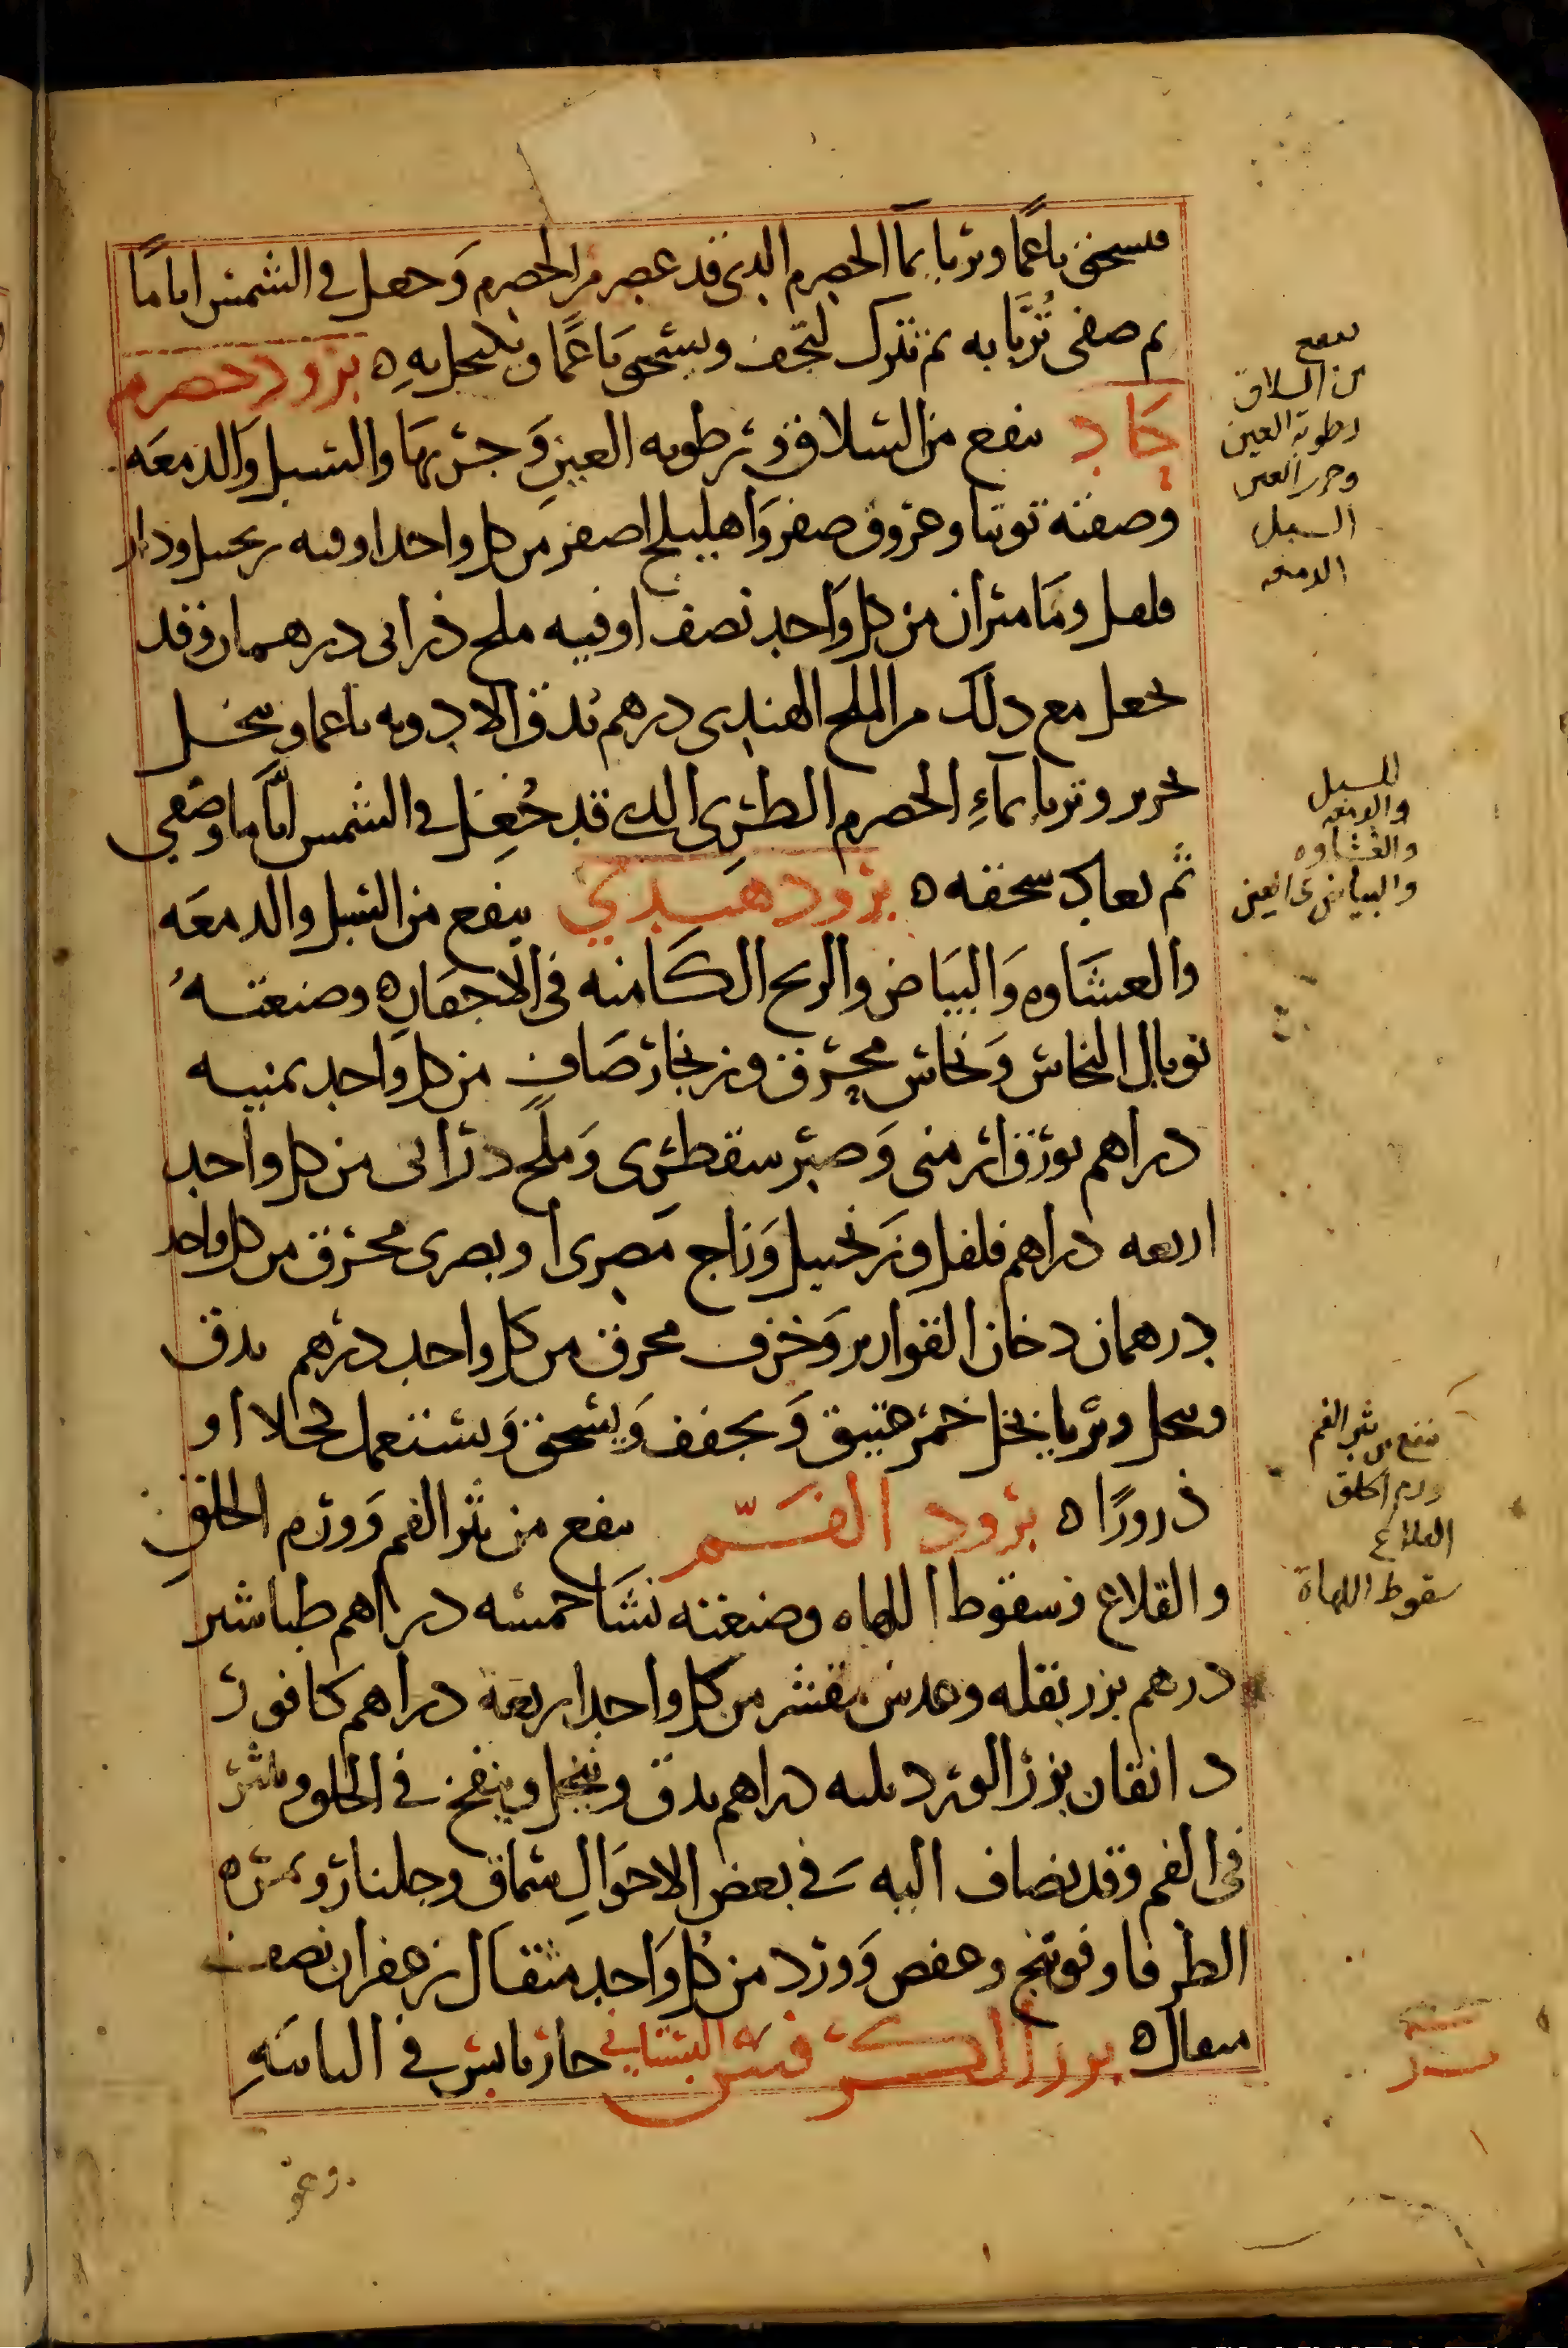 فيسحق ناعمًا ويربا بمآ الحصرم الدى قد عصر من الحصرم وَجعل في الشمس اياما
ثم صفى تُرَّبا به ثم تترك لتجف ويسحق ناعمًا ويكتحل بهِ ه برود حصرم
حَاد ينفع من السلاق ورطوبه العين وَجربهَا والسبل وَالدمعَه
وصفته توتيا وعروق صفر وَاهليلج اصفر من كل واحد اوقيه زنجبيل ودار
فلفل ومَاميران من كل وَاحد نصف اوقيه ملح ذرانى درهمان وقد
يجعل مع دلك من الملح الهندى درهم تدق الادويه ناعما وينخل
بحرير وتربا بمآءِ الحصرم الطرى الدى قد جُعِل في الشمس ايَّاما وصُفى
ثم يعاد سحقه ه برود هندي ينفع من السبل والدمعَه
والعشَاوه وَالبيَاض والريح الكَامنه في الاجفان ه وصنعتهُ
توبال النحاس وَنحاس محرق وزنجار صَاف من كل وَاحد ثمنيه
دراهم بورق ارمنى وَصبر سقطرى وَملح درانى من كل واحد
اربعه دراهم فلفل وزنجبيل وَزاج مصرى او بصرى محرق من كل واحد
درهمان دخان القوارير وَخزف محرق من كل واحد درهم يدق
وينخل ويربا بخل خمر عتيق وَيجفف وَيسحق وَيستعمل كحلا او
ذرورًا ه برود الفَمّ ينفع من بثر الفم وَورم الحلقِ
والقلاع وسقوط اللهاه وصنعته نشَا خمسه دراهم طباشير
درهم بزر بقله وعدس مقشر من كل واحد اربعة دراهم كافور
دانقان بزر الورد ثلثه دراهم يدق وينخل وينفخ في الحلق وينثر
في الفم وقد يضاف اليه في بعض الاحوَالِ سماق وجلنار وثمره
الطرفا وفوتنج وعفص وَورد من كل وَاحد مثقال زعفران نصف
مثقال ه بزر الكرفس البستاني حار يابس في الثانيَهِ
ينفع
من السلاق
رطوبة العين
وجرب العين
السبل
الدمعه
للسبل
والدمعه
والغشاوه
والبياض في العين
ينفع من بثر الفم
ورم الحلق
القلاع
سقوط اللهاة